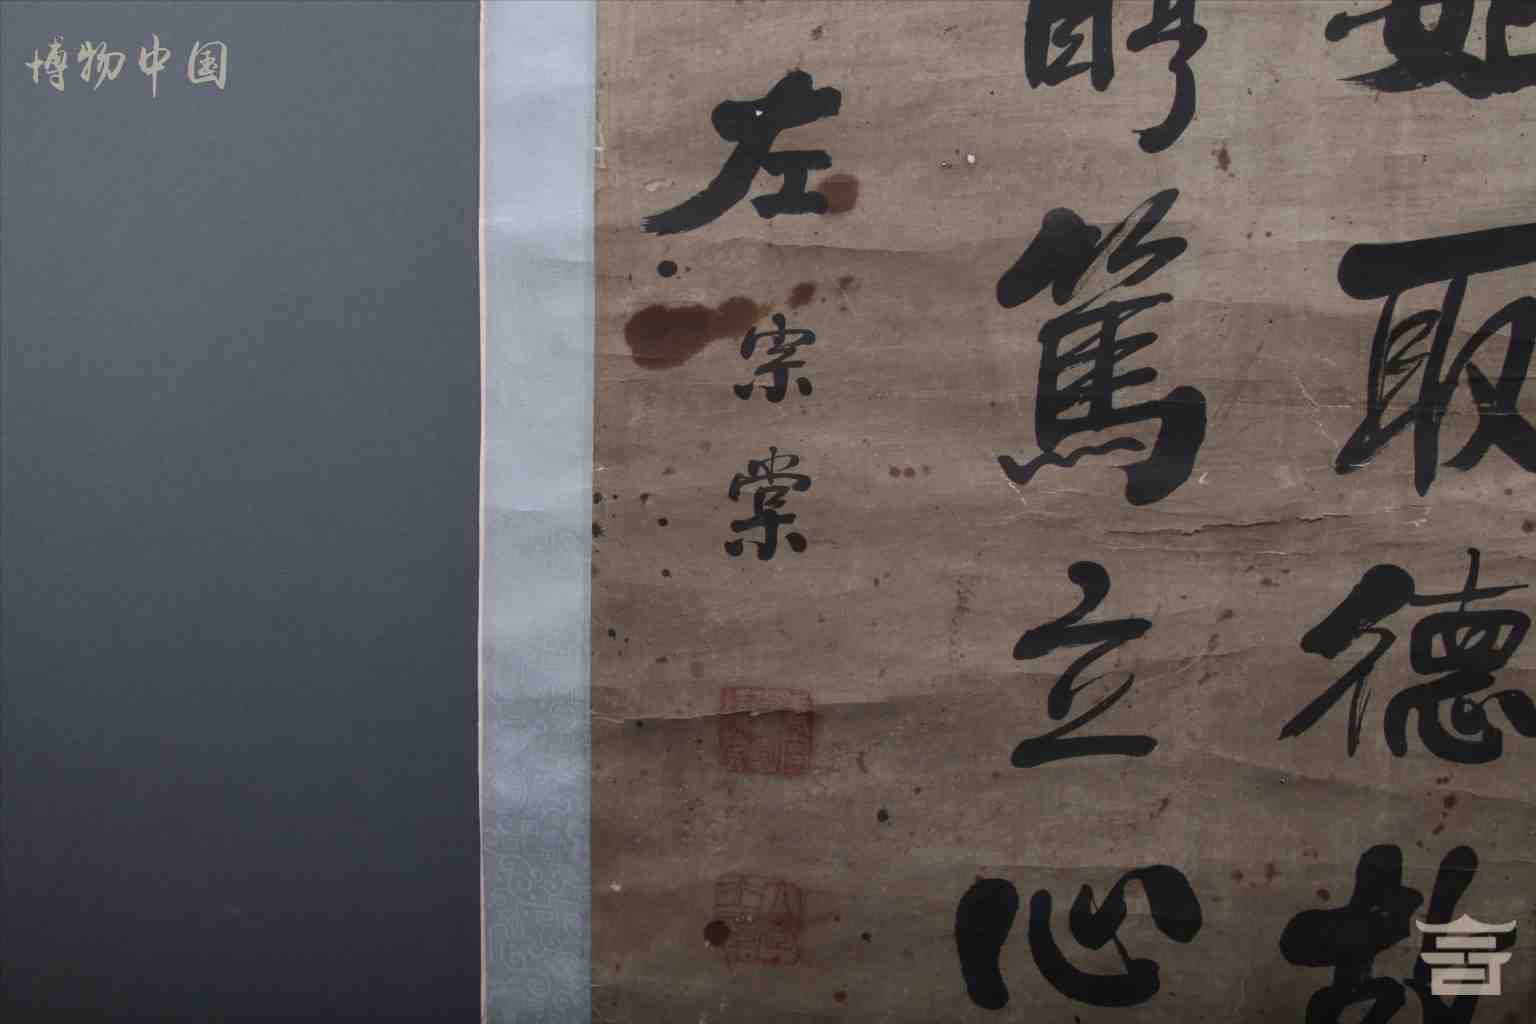 博物中国
取德故
篤立心
左宗棠